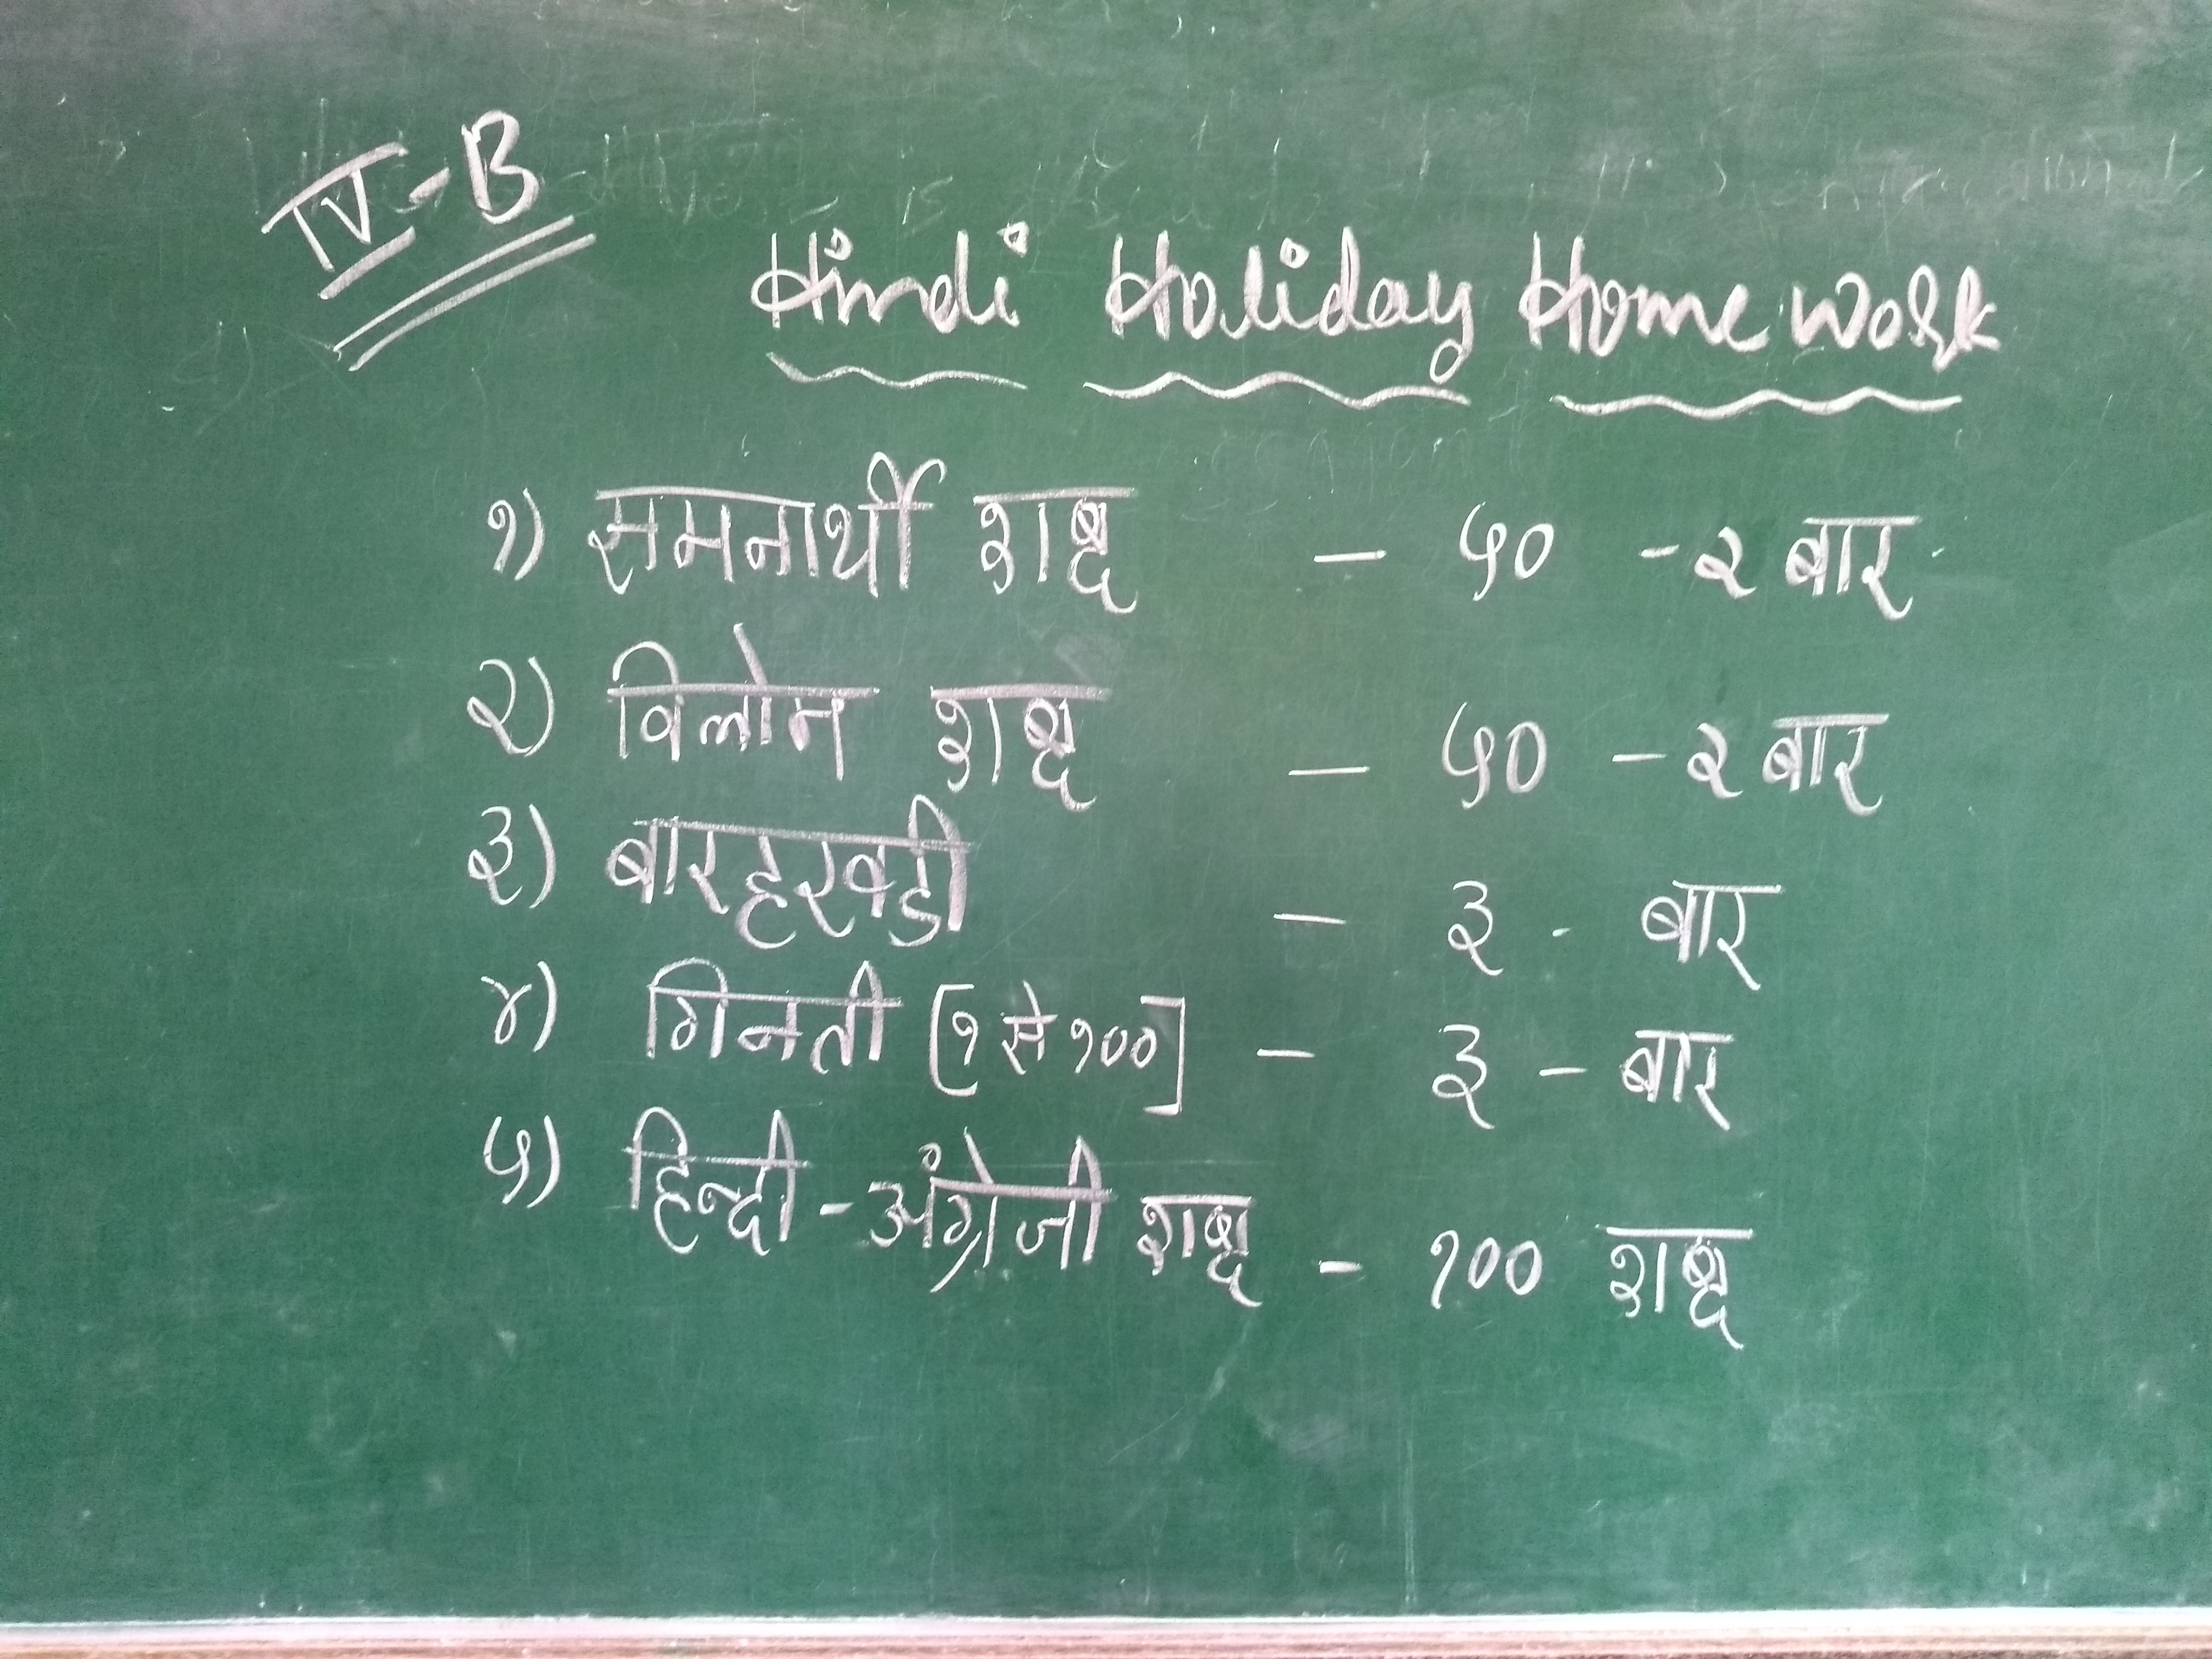 IV-B
Hindi Holiday Home work
१) समनार्थी शब्द - ५० - २ बार
२) विलोम शब्द - ५० - २ बार
३) बारहखडी - ३ - बार
४) गिनती [१ से १००] - ३ - बार
५) हिन्दी - अंग्रेजी शब्द - १०० शब्द